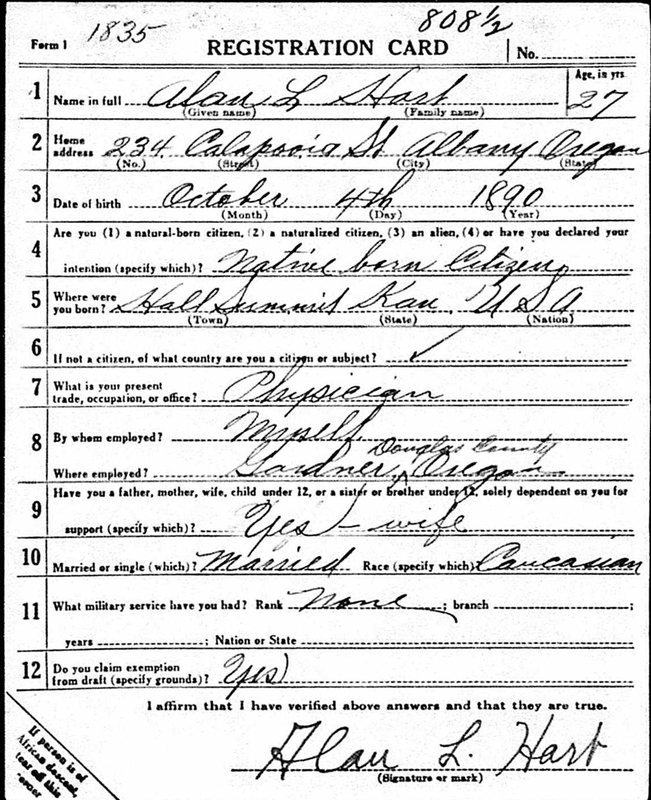 1835 808 1/2
Form 1 REGISTRATION CARD No.
1 Name in full Alan L Hart Age, in yrs. 27
(Given name) (Family name)
2 Home address 234 Calapooia St Albany Oregon
(No.) (Street) (City) (State)
3 Date of birth October 4th 1890
(Month) (Day) (Year)
4 Are you (1) a natural-born citizen, (2) a naturalized citizen, (3) an alien, (4) or have you declared your
intention (specify which)? Native born Citizen
5 Where were you born? Hall Summit Kan, U S A
(Town) (State) (Nation)
6 If not a citizen, of what country are you a citizen or subject? ✓
7 What is your present trade, occupation, or office? Physician
8 By whom employed? Myself
Douglas County
Where employed? Gardner, Oregon
9 Have you a father, mother, wife, child under 12, or a sister or brother under 12, solely dependent on you for
support (specify which)? Yes - wife
10 Married or single (which)? Married Race (specify which) Caucasian
11 What military service have you had? Rank None ; branch ;
years ; Nation or State
12 Do you claim exemption from draft (specify grounds)? Yes
I affirm that I have verified above answers and that they are true.
Alan L. Hart
(Signature or mark)
If person is of
African descent,
tear off this
corner